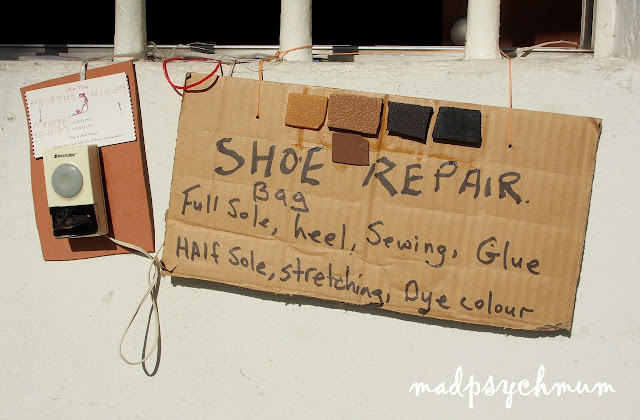 SHOE REPAIR.
Bag
Full Sole, heel, Sewing, Glue
HAlf Sole, stretching, Dye colour
madpsychmum